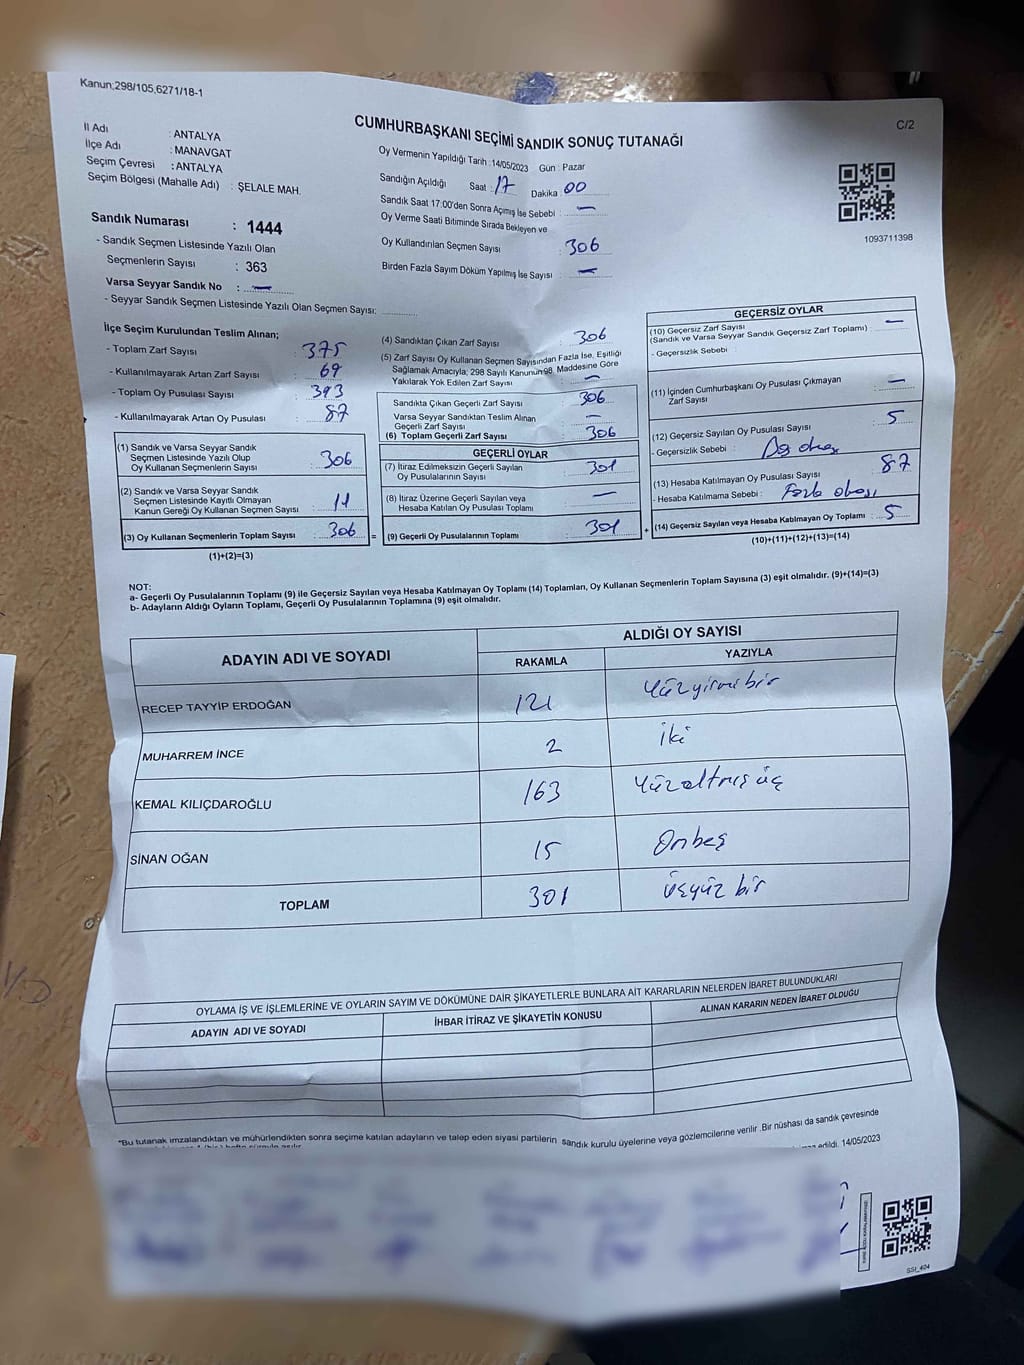 Kanun;298/105,6271/18-1
C/2
CUMHURBAŞKANI SEÇİMİ SANDIK SONUÇ TUTANAĞI
İl Adı : ANTALYA
İlçe Adı : MANAVGAT
Seçim Çevresi : ANTALYA
Seçim Bölgesi (Mahalle Adı) : ŞELALE MAH.
Oy Vermenin Yapıldığı Tarih :14/05/2023 Gün : Pazar
Sandığın Açıldığı Saat : 17 Dakika 00
Sandık Saat 17:00'den Sonra Açımış İse Sebebi : —
Oy Verme Saati Bitiminde Sırada Bekleyen ve
Oy Kullandırılan Seçmen Sayısı : 306
Birden Fazla Sayım Döküm Yapılmış İse Sayısı : —
1093711398
Sandık Numarası : 1444
- Sandık Seçmen Listesinde Yazılı Olan
Seçmenlerin Sayısı : 363
Varsa Seyyar Sandık No : —
- Seyyar Sandık Seçmen Listesinde Yazılı Olan Seçmen Sayısı:
İlçe Seçim Kurulundan Teslim Alınan;
- Toplam Zarf Sayısı : 375
- Kullanılmayarak Artan Zarf Sayısı : 69
- Toplam Oy Pusulası Sayısı : 393
- Kullanılmayarak Artan Oy Pusulası : 87
(1) Sandık ve Varsa Seyyar Sandık
Seçmen Listesinde Yazılı Olup
Oy Kullanan Seçmenlerin Sayısı : 306
(2) Sandık ve Varsa Seyyar Sandık
Seçmen Listesinde Kayıtlı Olmayan
Kanun Gereği Oy Kullanan Seçmen Sayısı : 11
(3) Oy Kullanan Seçmenlerin Toplam Sayısı : 306 =
(1)+(2)=(3)
(4) Sandıktan Çıkan Zarf Sayısı : 306
(5) Zarf Sayısı Oy Kullanan Seçmen Sayısından Fazla İse, Eşitliği
Sağlamak Amacıyla; 298 Sayılı Kanunun 98. Maddesine Göre
Yakılarak Yok Edilen Zarf Sayısı : —
Sandıkta Çıkan Geçerli Zarf Sayısı : 306
Varsa Seyyar Sandıktan Teslim Alınan
Geçerli Zarf Sayısı : —
(6) Toplam Geçerli Zarf Sayısı : 306
GEÇERLİ OYLAR
(7) İtiraz Edilmeksizin Geçerli Sayılan
Oy Pusulalarının Sayısı : 301
(8) İtiraz Üzerine Geçerli Sayılan veya
Hesaba Katılan Oy Pusulası Toplamı : —
(9) Geçerli Oy Pusulalarının Toplamı : 301 +
GEÇERSİZ OYLAR
(10) Geçersiz Zarf Sayısı
(Sandık ve Varsa Seyyar Sandık Geçersiz Zarf Toplamı) : —
- Geçersizlik Sebebi :
(11) İçinden Cumhurbaşkanı Oy Pusulası Çıkmayan
Zarf Sayısı : —
(12) Geçersiz Sayılan Oy Pusulası Sayısı : 5
- Geçersizlik Sebebi :
(13) Hesaba Katılmayan Oy Pusulası Sayısı : 87
- Hesaba Katılmama Sebebi : Fazla
(14) Geçersiz Sayılan veya Hesaba Katılmayan Oy Toplamı : 5
(10)+(11)+(12)+(13)=(14)
NOT:
a- Geçerli Oy Pusulalarının Toplamı (9) ile Geçersiz Sayılan veya Hesaba Katılmayan Oy Toplamı (14) Toplamları, Oy Kullanan Seçmenlerin Toplam Sayısına (3) eşit olmalıdır. (9)+(14)=(3)
b- Adayların Aldığı Oyların Toplamı, Geçerli Oy Pusulalarının Toplamına (9) eşit olmalıdır.
ADAYIN ADI VE SOYADI
ALDIĞI OY SAYISI
RAKAMLA YAZIYLA
RECEP TAYYİP ERDOĞAN 121 Yüzyirmibir
MUHARREM İNCE 2 iki
KEMAL KILIÇDAROĞLU 163 Yüzaltmışüç
SİNAN OĞAN 15 Onbeş
TOPLAM 301 üçyüz bir
OYLAMA İŞ VE İŞLEMLERİNE VE OYLARIN SAYIM VE DÖKÜMÜNE DAİR ŞİKAYETLERLE BUNLARA AİT KARARLARIN NELERDEN İBARET BULUNDUKLARI
ADAYIN ADI VE SOYADI İHBAR İTİRAZ VE ŞİKAYETİN KONUSU ALINAN KARARIN NEDEN İBARET OLDUĞU
*Bu tutanak imzalandıktan ve mühürlendikten sonra seçime katılan adayların ve talep eden siyasi partilerin sandık kurulu üyelerine veya gözlemcilerine verilir .Bir nüshası da sandık çevresinde
edildi. 14/05/2023
SSI_404